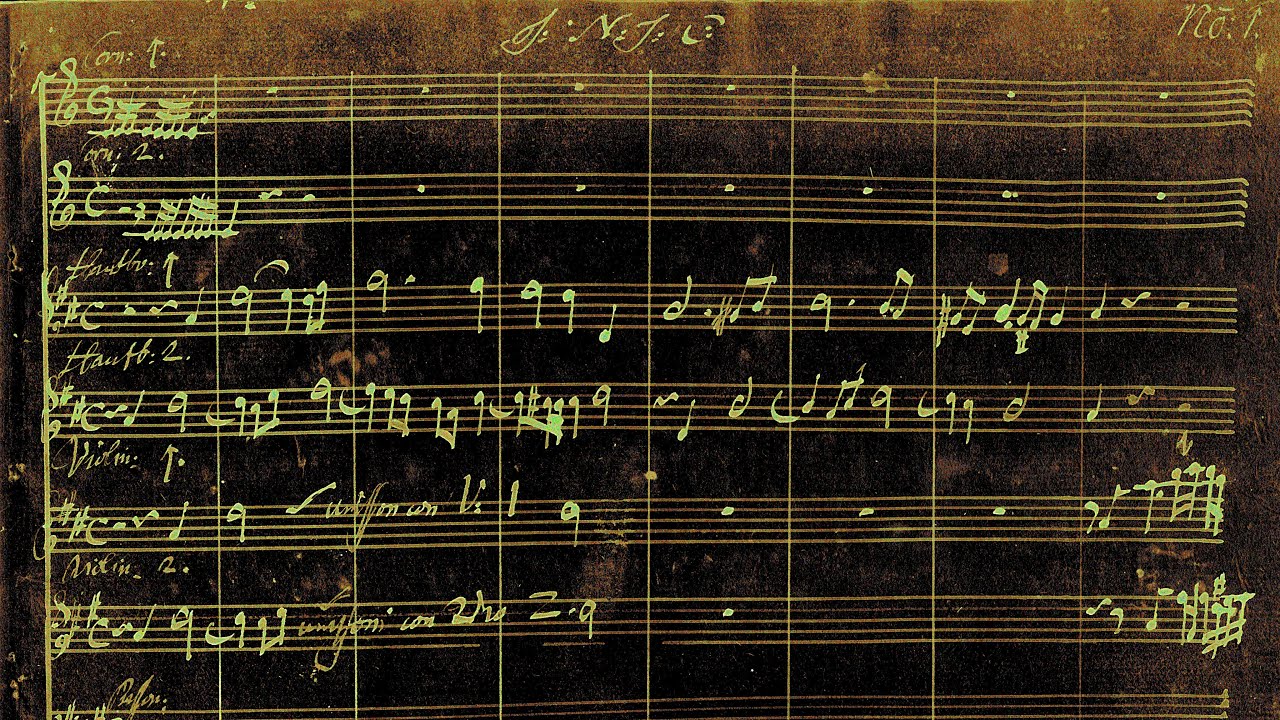 J: N: J: C:
No: 1.
Corn: 1.
Corn: 2.
Hautbo: 1
Hautb: 2.
Violin: 1.
unisson con V: 1
Violin. 2.
unissoni con Vno 2.